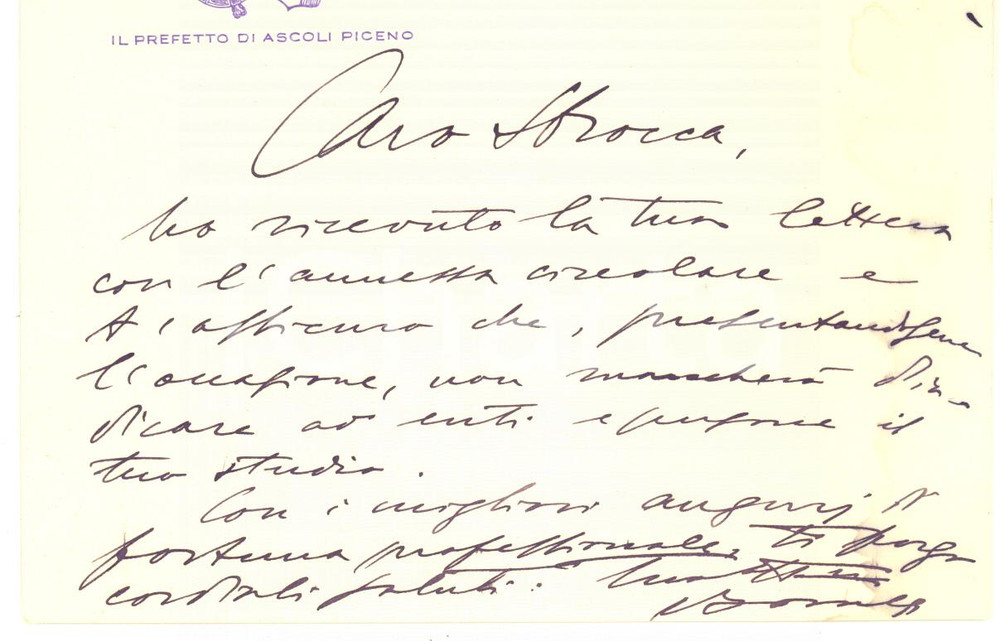 IL PREFETTO DI ASCOLI PICENO
Caro Sbrocca,
ho ricevuto la tua lettera
con l'annessa circolare e
t'assicuro che, presentandosene
l'occasione, non mancherò d'in-
dicare ad enti e persone il
tuo studio.
Con i migliori auguri di
fortuna professionale, ti porgo
cordiali saluti: